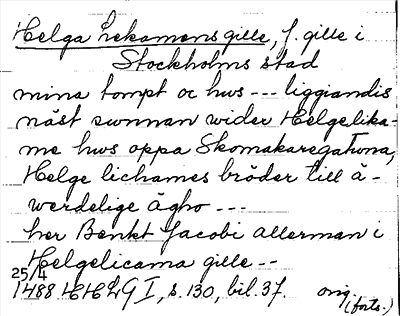 Helga lekamens gille, f. gille i
Stockholms stad
mina tompt oc hws --- liggiandis
näst sunnan wider Helgelika-
me hws oppa Skomakaregatwna,
Helge lichames bröder till ä-
werdelige ägho ---
her Benkt Jacobi allerman i
Helgelicama gille --
25/4
1488 HHLG I, s. 130, bil. 37. orig.
(forts.)